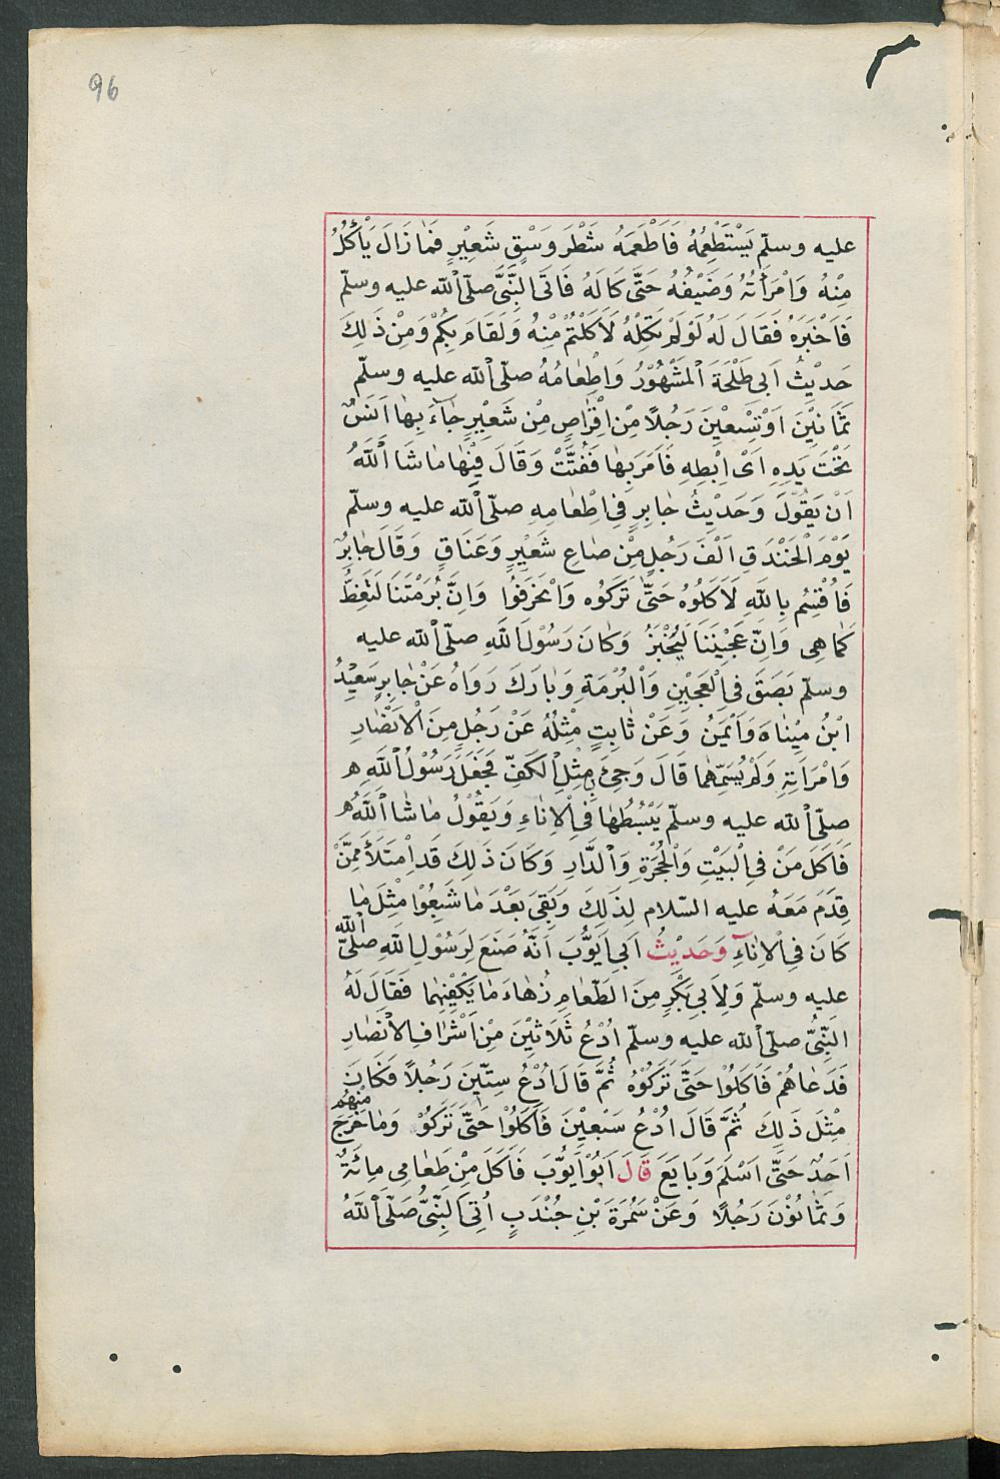 96
عليه وسلّم يَسْتَطْعِمُهُ فَاَطْعَمَهُ شَطْرَ وَسْقِ شَعِيْرٍ فَمَا زَالَ يَاْكُلُ
مِنْهُ وَامْرَأَتُهُ وَضَيْفُهُ حَتَّى كَالَهُ فَاَتَى النَّبِىَّ صلّى الله عليه وسلّم
فَاَخْبَرَهُ فَقَالَ لَهُ لَوْ لَمْ تَكِلْهُ لَاَكَلْتُمْ مِنْهُ وَلَقَامَ بِكُمْ وَمِنْ ذَلِكَ
حَدِيْثُ اَبِى طَلْحَةَ الْمَشْهُوْرُ وَاِطْعَامُهُ صلّى الله عليه وسلّم
ثَمَانِيْنَ اَوْ تِسْعِيْنَ رَجُلًا مِنْ اَقْرَاصٍ مِنْ شَعِيْرٍ جَاءَ بِهَا اَنَسٌ
تَحْتَ يَدِهِ اَىْ اِبْطِهِ فَاَمَرَ بِهَا فَفُتَّتْ وَقَالَ فِيْهَا مَا شَا اللَّهُ
اَنْ يَقُوْلَ وَحَدِيْثُ جَابِرٍ فِى اِطْعَامِهِ صلّى الله عليه وسلّم
يَوْمَ الْخَنْدَقِ اَلْفَ رَجُلٍ مِنْ صَاعِ شَعِيْرٍ وَعَنَاقٍ وَقَالَ جَابِرٌ
فَاُقْسِمُ بِاللَّهِ لَاَكَلُوْهُ حَتَّى تَرَكُوْه وَانْحَرَفُوْا وَاِنَّ بُرْمَتَنَا لَتَغِطُّ
كَمَا هِى وَاِنَّ عَجِيْنَنَا لَيُخْبَزُ وَكَانَ رَسُوْلُ اللَّهِ صلّى الله عليه
وسلّم بَصَقَ فِى الْعَجِيْنِ وَالْبُرْمَةِ وَبَارَكَ رَوَاهُ عَنْ جَابِرٍ سَعِيْدُ
ابْنُ مِيْنَاءَ وَاَيْمَنُ وَعَنْ ثَابِتٍ مِثْلُهُ عَنْ رَجُلٍ مِنَ الْاَنْصَارِ
وَامْرَاَتِهِ وَلَمْ يُسَمِّهِمَا قَالَ وَجِئَ بِمِثْلِ الْكَفِّ فَجَعَلَ رَسُوْلُ اللَّهِ
صلّى الله عليه وسلّم يَبْسُطُهَا فِى الْاِنَاءِ وَيَقُوْلُ مَا شَا اللَّهُ
فَاَكَلَ مَنْ فِى الْبَيْتِ وَالْحُجْرَةِ وَالدَّارِ وَكَانَ ذَلِكَ قَدِ امْتَلَأَ مِمَّنْ
قَدِمَ مَعَهُ عليه السّلام لِذَلِكَ وَبَقِىَ بَعْدَ مَا شَبِعُوْا مِثْلَ مَا
كَانَ فِى الْاِنَاءِ وَحَدِيْثُ اَبِى اَيُّوْبَ اَنَّهُ صَنَعَ لِرَسُوْلِ اللَّهِ صلّى الله
عليه وسلّم وَلِاَبِى بَكْرٍ مِنَ الطَّعَامِ زُهَاءَ مَا يَكْفِيْهِمَا فَقَالَ لَهُ
النَّبِىُّ صلّى الله عليه وسلّم اُدْعُ ثَلَاثِيْنَ مِنْ اَشْرَافِ الْاَنْصَارِ
فَدَعَاهُمْ فَاَكَلُوْا حَتَّى تَرَكُوْهُ ثُمَّ قَالَ ادْعُ سِتِّيْنَ رَجُلًا فَكَانَ
مِثْلَ ذَلِكَ ثُمَّ قَالَ ادْعُ سَبْعِيْنَ فَاَكَلُوْا حَتَّى تَرَكُوْ وَمَا خَرَجَ مِنْهُمْ
اَحَدٌ حَتَّى اَسْلَمَ وَبَايَعَ قَالَ اَبُوْ اَيُّوْبَ فَاَكَلَ مِنْ طَعَامِى مِائَةٌ
وَثَمَانُوْنَ رَجُلًا وَعَنْ سَمُرَةَ بْنِ جُنْدَبٍ اُتِىَ النَّبِىُّ صَلَّى اللَّهُ